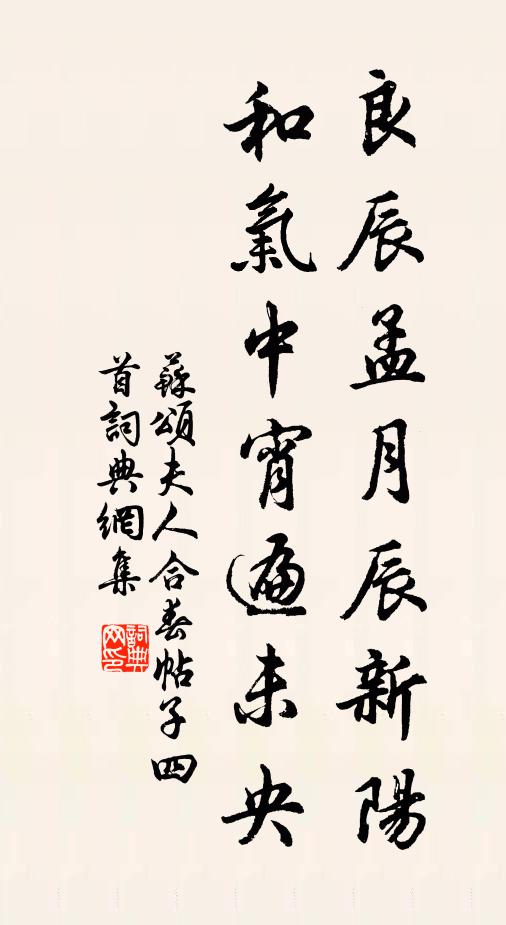 良辰孟月辰新陽
和氣中宵遍未央
蘇頌夫人合春帖子四
首詞典網集
詞典網印